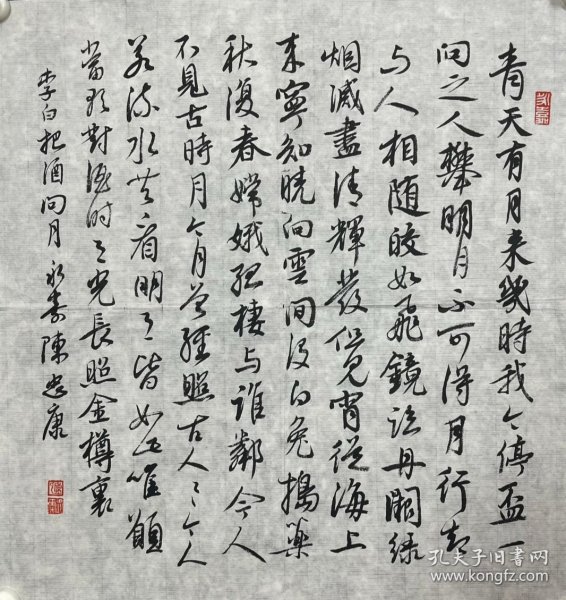 青天有月来幾時我今停盃一
问之人攀明月不可得月行却
与人相随皎如飛鏡临丹闕緑
烟滅盡清輝發但見宵從海上
来寧知曉向雲间没白兔搗藥
秋復春嫦娥孤棲与誰鄰今人
不見古時月今月曾經照古人〻今人
若流水共看明月皆如此唯願
當歌對酒时月光長照金樽裏
李白把酒问月 永嘉陳忠康
孔夫子旧书网
www.kongfz.com